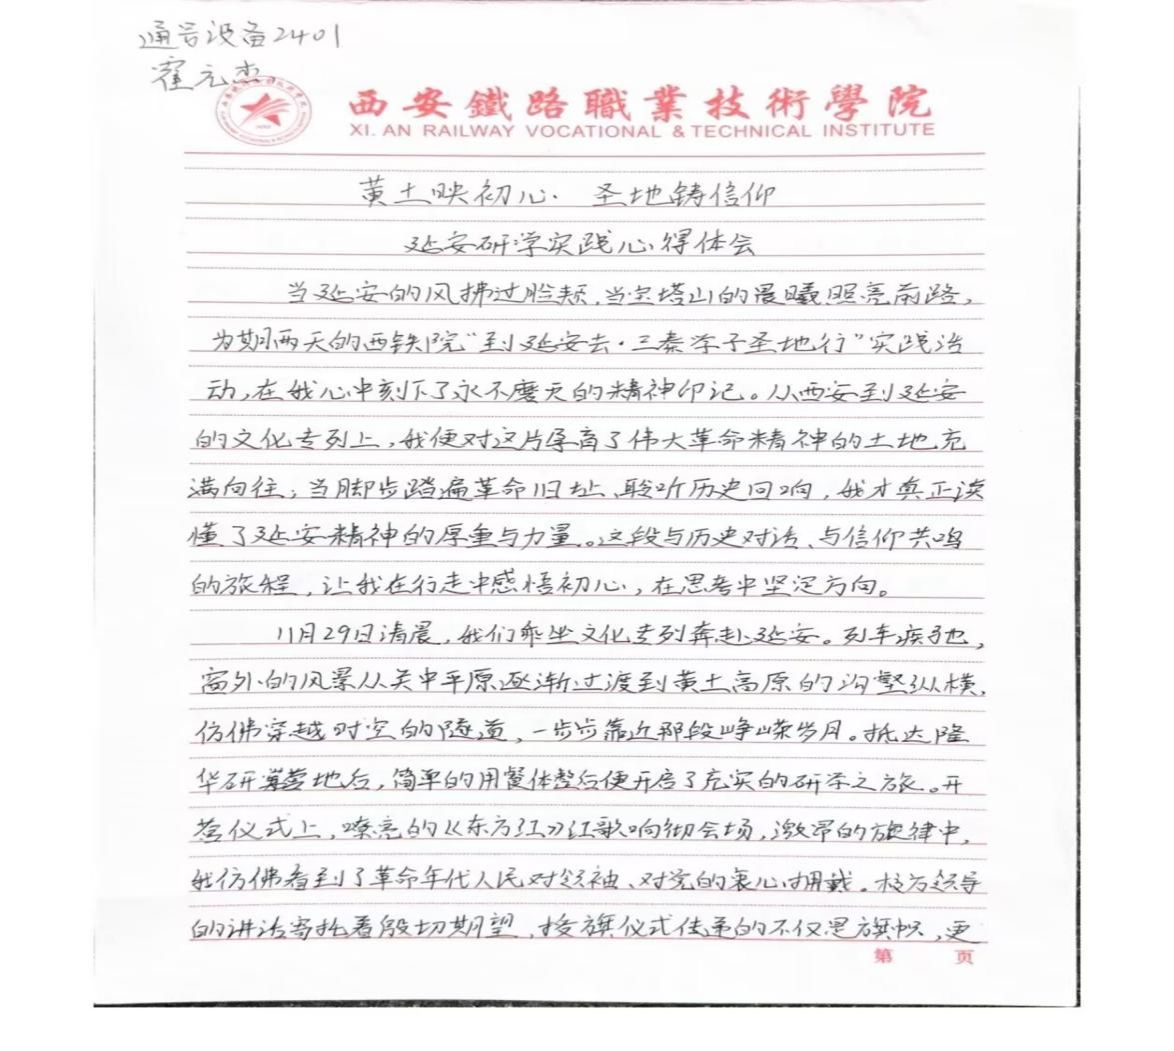 通号设备2401
霍元杰
西安鐵路職業技術學院
XI. AN RAILWAY VOCATIONAL & TECHNICAL INSTITUTE
黄土映初心· 圣地铸信仰
延安研学实践心得体会
当延安的风拂过脸颊,当宝塔山的晨曦照亮前路,
为期两天的西铁院“到延安去·三秦学子圣地行”实践活
动,在我心中刻下了永不磨灭的精神印记。从西安到延安
的文化专列上,我便对这片孕育了伟大革命精神的土地充
满向往;当脚步踏遍革命旧址、聆听历史回响,我才真正读
懂了延安精神的厚重与力量。这段与历史对话、与信仰共鸣
的旅程,让我在行走中感悟初心,在思考中坚定方向。
11月29日清晨,我们乘坐文化专列奔赴延安。列车疾驰,
窗外的风景从关中平原逐渐过渡到黄土高原的沟壑纵横,
仿佛穿越时空的隧道,一步步靠近那段峥嵘岁月。抵达隆
华研营地后,简单的用餐休整后便开启了充实的研学之旅。开
营仪式上,嘹亮的《东方红》红歌响彻会场,激昂的旋律中,
我仿佛看到了革命年代人民对领袖、对党的衷心拥戴。校方领导
的讲话寄托着殷切期望,授旗仪式传递的不仅是旗帜,更
第 页